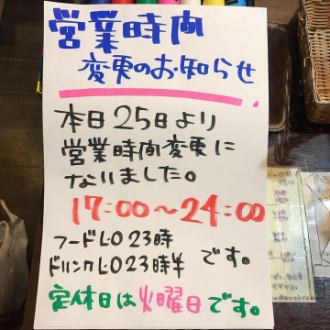 営業時間
変更のお知らせ
本日25日より
営業時間変更に
なりました。
17:00～24:00
フードLO 23時
ドリンクLO 23時半 です。
定休日は火曜日です。